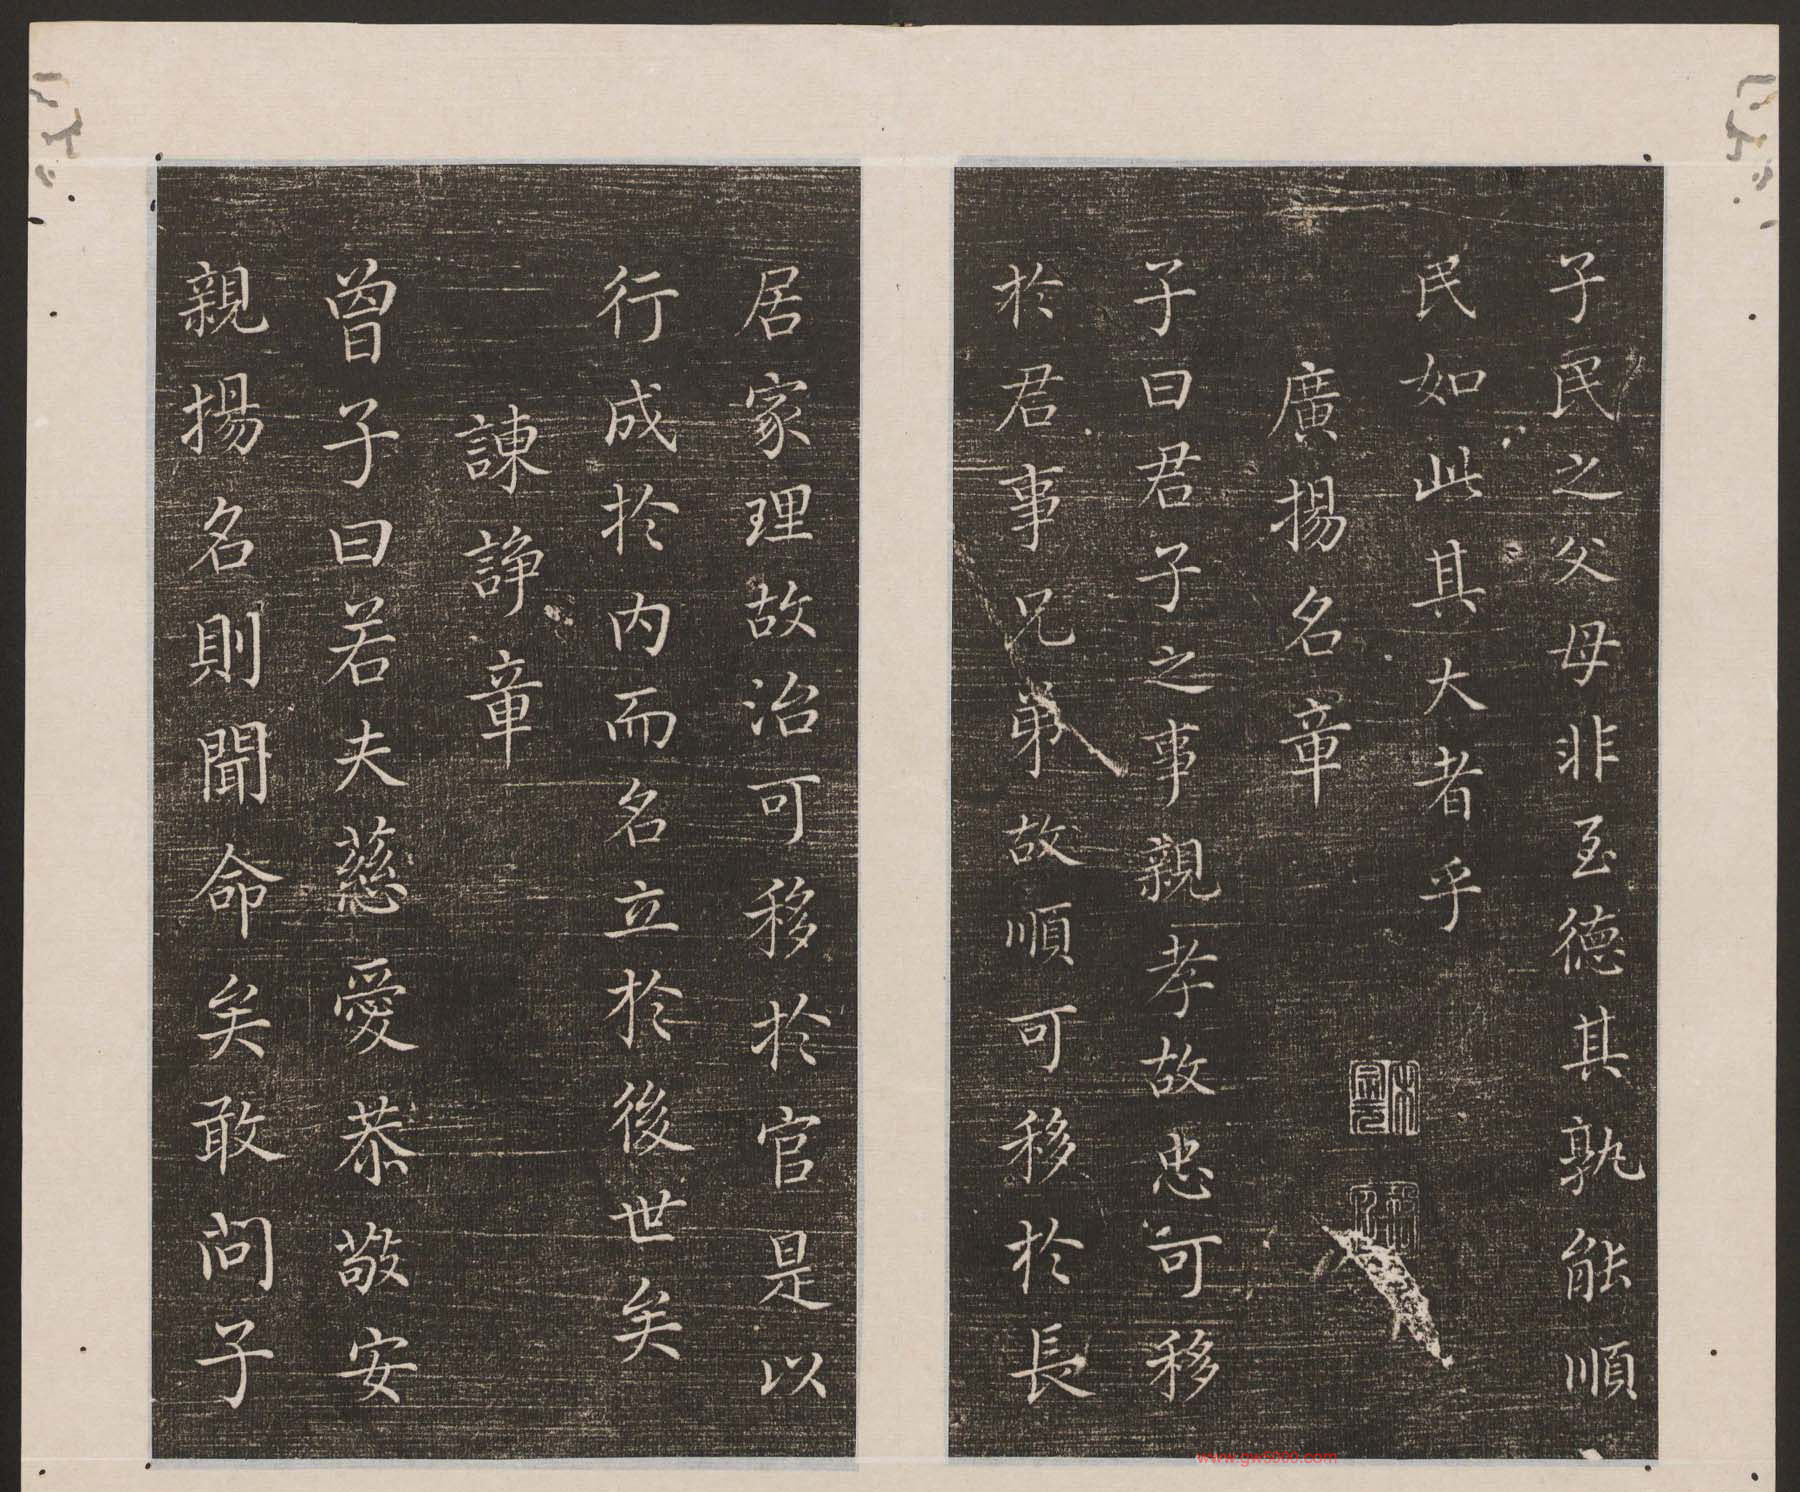 子民之父母非至德其孰能順
民如此其大者乎
廣揚名章
子曰君子之事親孝故忠可移
於君事兄弟故順可移於長
居家理故治可移於官是以
行成於內而名立於後世矣
諫諍章
曾子曰若夫慈愛恭敬安
親揚名則聞命矣敢問子
www.gw5000.com